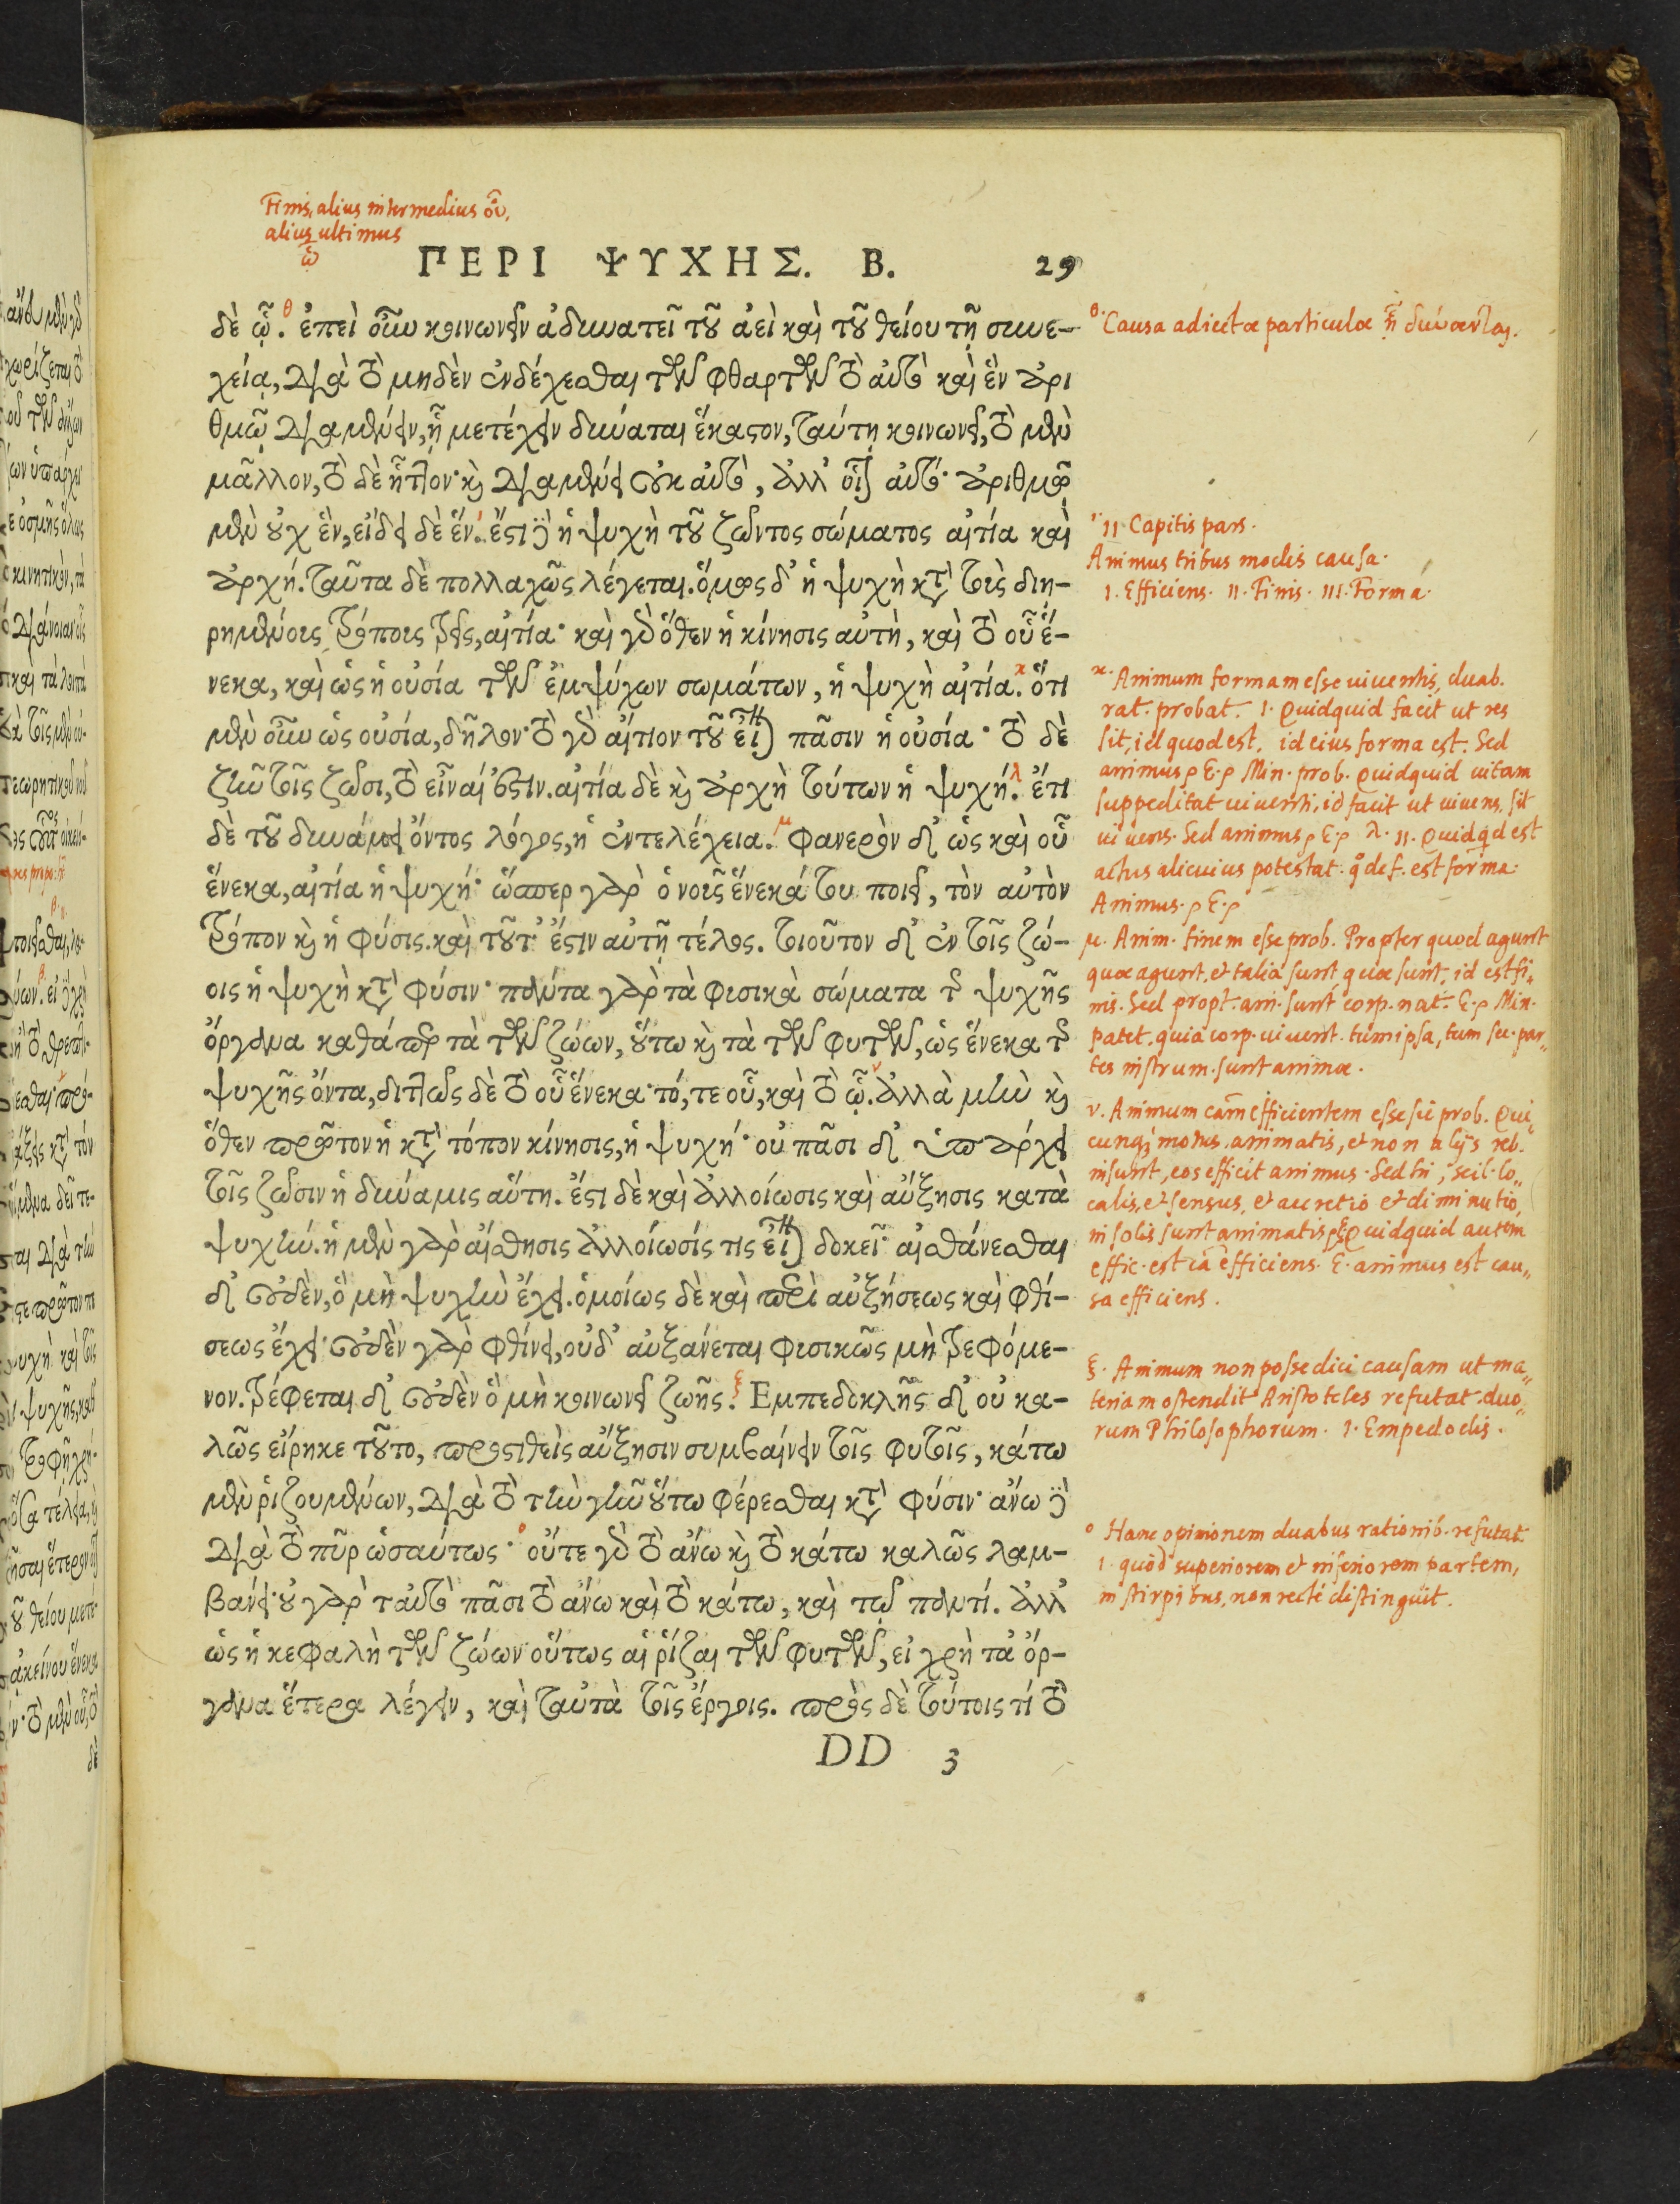 Finis, alius intermedius οὗ,
alius ultimus
ᾧ
ΠΕΡΙ ΨΥΧΗΣ. Β. 29
δὲ ᾧ. θ ἐπεὶ οὖν κοινωνεῖν ἀδυνατεῖ τοῦ ἀεὶ καὶ τοῦ θείου τῇ συνε-
χείᾳ, διὰ τὸ μηδὲν ἐνδέχεσθαι τῶν φθαρτῶν τὸ αὐτὸ καὶ ἓν ἀρι
θμῷ διαμένειν, ᾗ μετέχειν δύναται ἕκαστον, ταύτῃ κοινωνεῖ, τὸ μὲν
μᾶλλον, τὸ δὲ ἧττον· καὶ διαμένει οὐκ αὐτὸ, ἀλλ' οἷον αὐτό· ἀριθμῷ
μὲν οὐχ ἓν, εἴδει δὲ ἕν. ι ἔστι δὲ ἡ ψυχὴ τοῦ ζῶντος σώματος αἰτία καὶ
ἀρχή. ταῦτα δὲ πολλαχῶς λέγεται. ὁμοίως δ' ἡ ψυχὴ κατὰ τοὺς διῃ-
ρημένους τρόπους τρεῖς, αἰτία· καὶ γὰρ ὅθεν ἡ κίνησις αὐτὴ, καὶ τὸ οὗ ἕ-
νεκα, καὶ ὡς ἡ οὐσία τῶν ἐμψύχων σωμάτων, ἡ ψυχὴ αἰτία. κ ὅτι
μὲν οὖν ὡς οὐσία, δῆλον· τὸ γὰρ αἴτιον τοῦ εἶναι πᾶσιν ἡ οὐσία· τὸ δὲ
ζῆν τοῖς ζῶσι, τὸ εἶναί ἐστιν. αἰτία δὲ καὶ ἀρχὴ τούτων ἡ ψυχή. λ ἔτι
δὲ τοῦ δυνάμει ὄντος λόγος, ἡ ἐντελέχεια. μ φανερὸν δ' ὡς καὶ οὗ
ἕνεκα, αἰτία ἡ ψυχή· ὥσπερ γὰρ ὁ νοῦς ἕνεκά του ποιεῖ, τὸν αὐτὸν
τρόπον καὶ ἡ φύσις. καὶ τοῦτ' ἔστιν αὐτῇ τέλος. τοιοῦτον δ' ἐν τοῖς ζώ-
οις ἡ ψυχὴ κατὰ φύσιν· πάντα γὰρ τὰ φυσικὰ σώματα τῆς ψυχῆς
ὄργανα καθάπερ τὰ τῶν ζώων, οὕτω καὶ τὰ τῶν φυτῶν, ὡς ἕνεκα τῆς
ψυχῆς ὄντα, διττῶς δὲ τὸ οὗ ἕνεκα· τό, τε οὗ, καὶ τὸ ᾧ. ν ἀλλὰ μὴν καὶ
ὅθεν πρῶτον ἡ κατὰ τόπον κίνησις, ἡ ψυχή· οὐ πᾶσι δ' ὑπάρχει
τοῖς ζῶσιν ἡ δύναμις αὕτη. ἔστι δὲ καὶ ἀλλοίωσις καὶ αὔξησις κατὰ
ψυχήν. ἡ μὲν γὰρ αἴσθησις ἀλλοίωσίς τις εἶναι δοκεῖ· αἰσθάνεσθαι
δ' οὐδὲν, ὃ μὴ ψυχὴν ἔχει. ὁμοίως δὲ καὶ περὶ αὐξήσεως καὶ φθί-
σεως ἔχει· οὐδὲν γὰρ φθίνει, οὐδ' αὐξάνεται φυσικῶς μὴ τρεφόμε-
νον. τρέφεται δ' οὐδὲν ὃ μὴ κοινωνεῖ ζωῆς. ξ Εμπεδοκλῆς δ' οὐ κα-
λῶς εἴρηκε τοῦτο, προστιθεὶς αὔξησιν συμβαίνειν τοῖς φυτοῖς, κάτω
μὲν ῥιζουμένων, διὰ τὸ τὴν γῆν οὕτω φέρεσθαι κατὰ φύσιν· ἄνω δὲ
διὰ τὸ πῦρ ὡσαύτως· ο οὔτε γὰρ τὸ ἄνω καὶ τὸ κάτω καλῶς λαμ-
βάνει· οὐ γὰρ ταὐτὸ πᾶσι τὸ ἄνω καὶ τὸ κάτω, καὶ τῷ παντί. ἀλλ'
ὡς ἡ κεφαλὴ τῶν ζώων οὕτως αἱ ῥίζαι τῶν φυτῶν, εἰ χρὴ τὰ ὄρ-
γανα ἕτερα λέγειν, καὶ ταὐτὰ τοῖς ἔργοις. πρὸς δὲ τούτοις τί τὸ
DD 3
θ. Causa adiectæ particulæ ᾗ δύνανται.
ι II. Capitis pars.
Animus tribus modis causa.
I. Efficiens. II. Finis. III. Forma.
κ. Animum formam esse uiuentis, duab.
rat. probat. I. Quidquid facit ut res
sit, id quod est, id eius forma est. Sed
animus ρ E. ρ Min. prob. Quidquid uitam
suppeditat uiuenti, id facit ut uiuens sit
uiuens. Sed animus ρ E. ρ λ. II. Quidqd est
actus alicuius potestat. q̊ de f. est forma.
Animus. ρ E. ρ
μ. Anim. finem esse prob. Propter quod agunt
quæ agunt, et talia sunt quæ sunt, id est fi-
nis. Sed propt. an. sunt corp. nat. E. ρ Min.
patet. quia corp. uiuent. tum ipsa, tum su. par-
tes instrum. sunt animæ.
ν. Animum cam efficientem esse sic prob. Qui
cunq; motus animatis, et non alijs reb.
insunt, eos efficit animus. Sed hi, scil. lo-
calis, et sensus, et accretio et diminutio,
in solis sunt animatis ρ E. Quidquid autem
effic. est cā efficiens. E. animus est cau-
sa efficiens.
ξ. Animum non posse dici causam ut ma-
teriam ostendit Aristoteles refutat. duo-
rum Philosophorum. I. Empedoclis.
ο Hanc opinionem duabus rationib. refutat
I. quòd superiorem et inferiorem partem,
in stirpibus, non rectè distinguit.